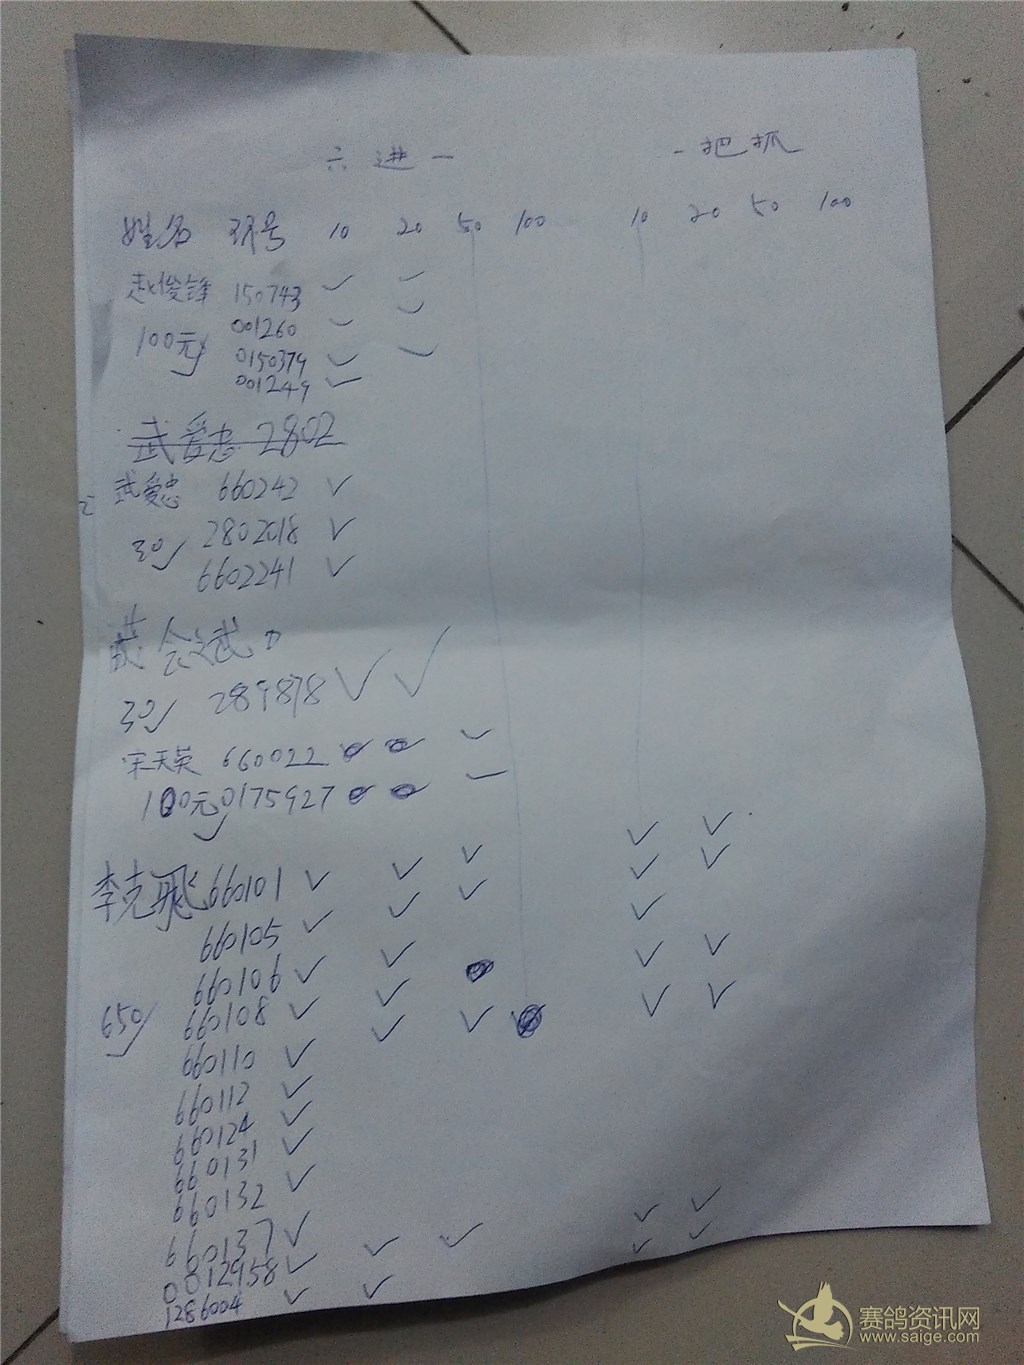 六进一 一把抓
姓名 环号 10 20 50 100 10 20 50 100
赵俊锋 150743 ✓ ✓
001260 ✓ ✓
100元 0150379 ✓ ✓
001249 ✓
武爱忠 2802
武爱忠 660242 ✓
30 2802018 ✓
6602241 ✓
武
30 289878 ✓ ✓
宋天英 660022 ✓
100元 0175927 ✓
李克飛 660101 ✓ ✓ ✓ ✓ ✓
660105 ✓ ✓ ✓ ✓ ✓
660106 ✓ ✓ ✓
650 660108 ✓ ✓ ✓ ✓
660110 ✓ ✓ ✓ ✓ ✓
660112 ✓
660124 ✓
660131 ✓
660132 ✓
660137 ✓
0812958 ✓ ✓ ✓ ✓ ✓
1286004 ✓ ✓ ✓ ✓
赛鸽资讯网
www.saige.com